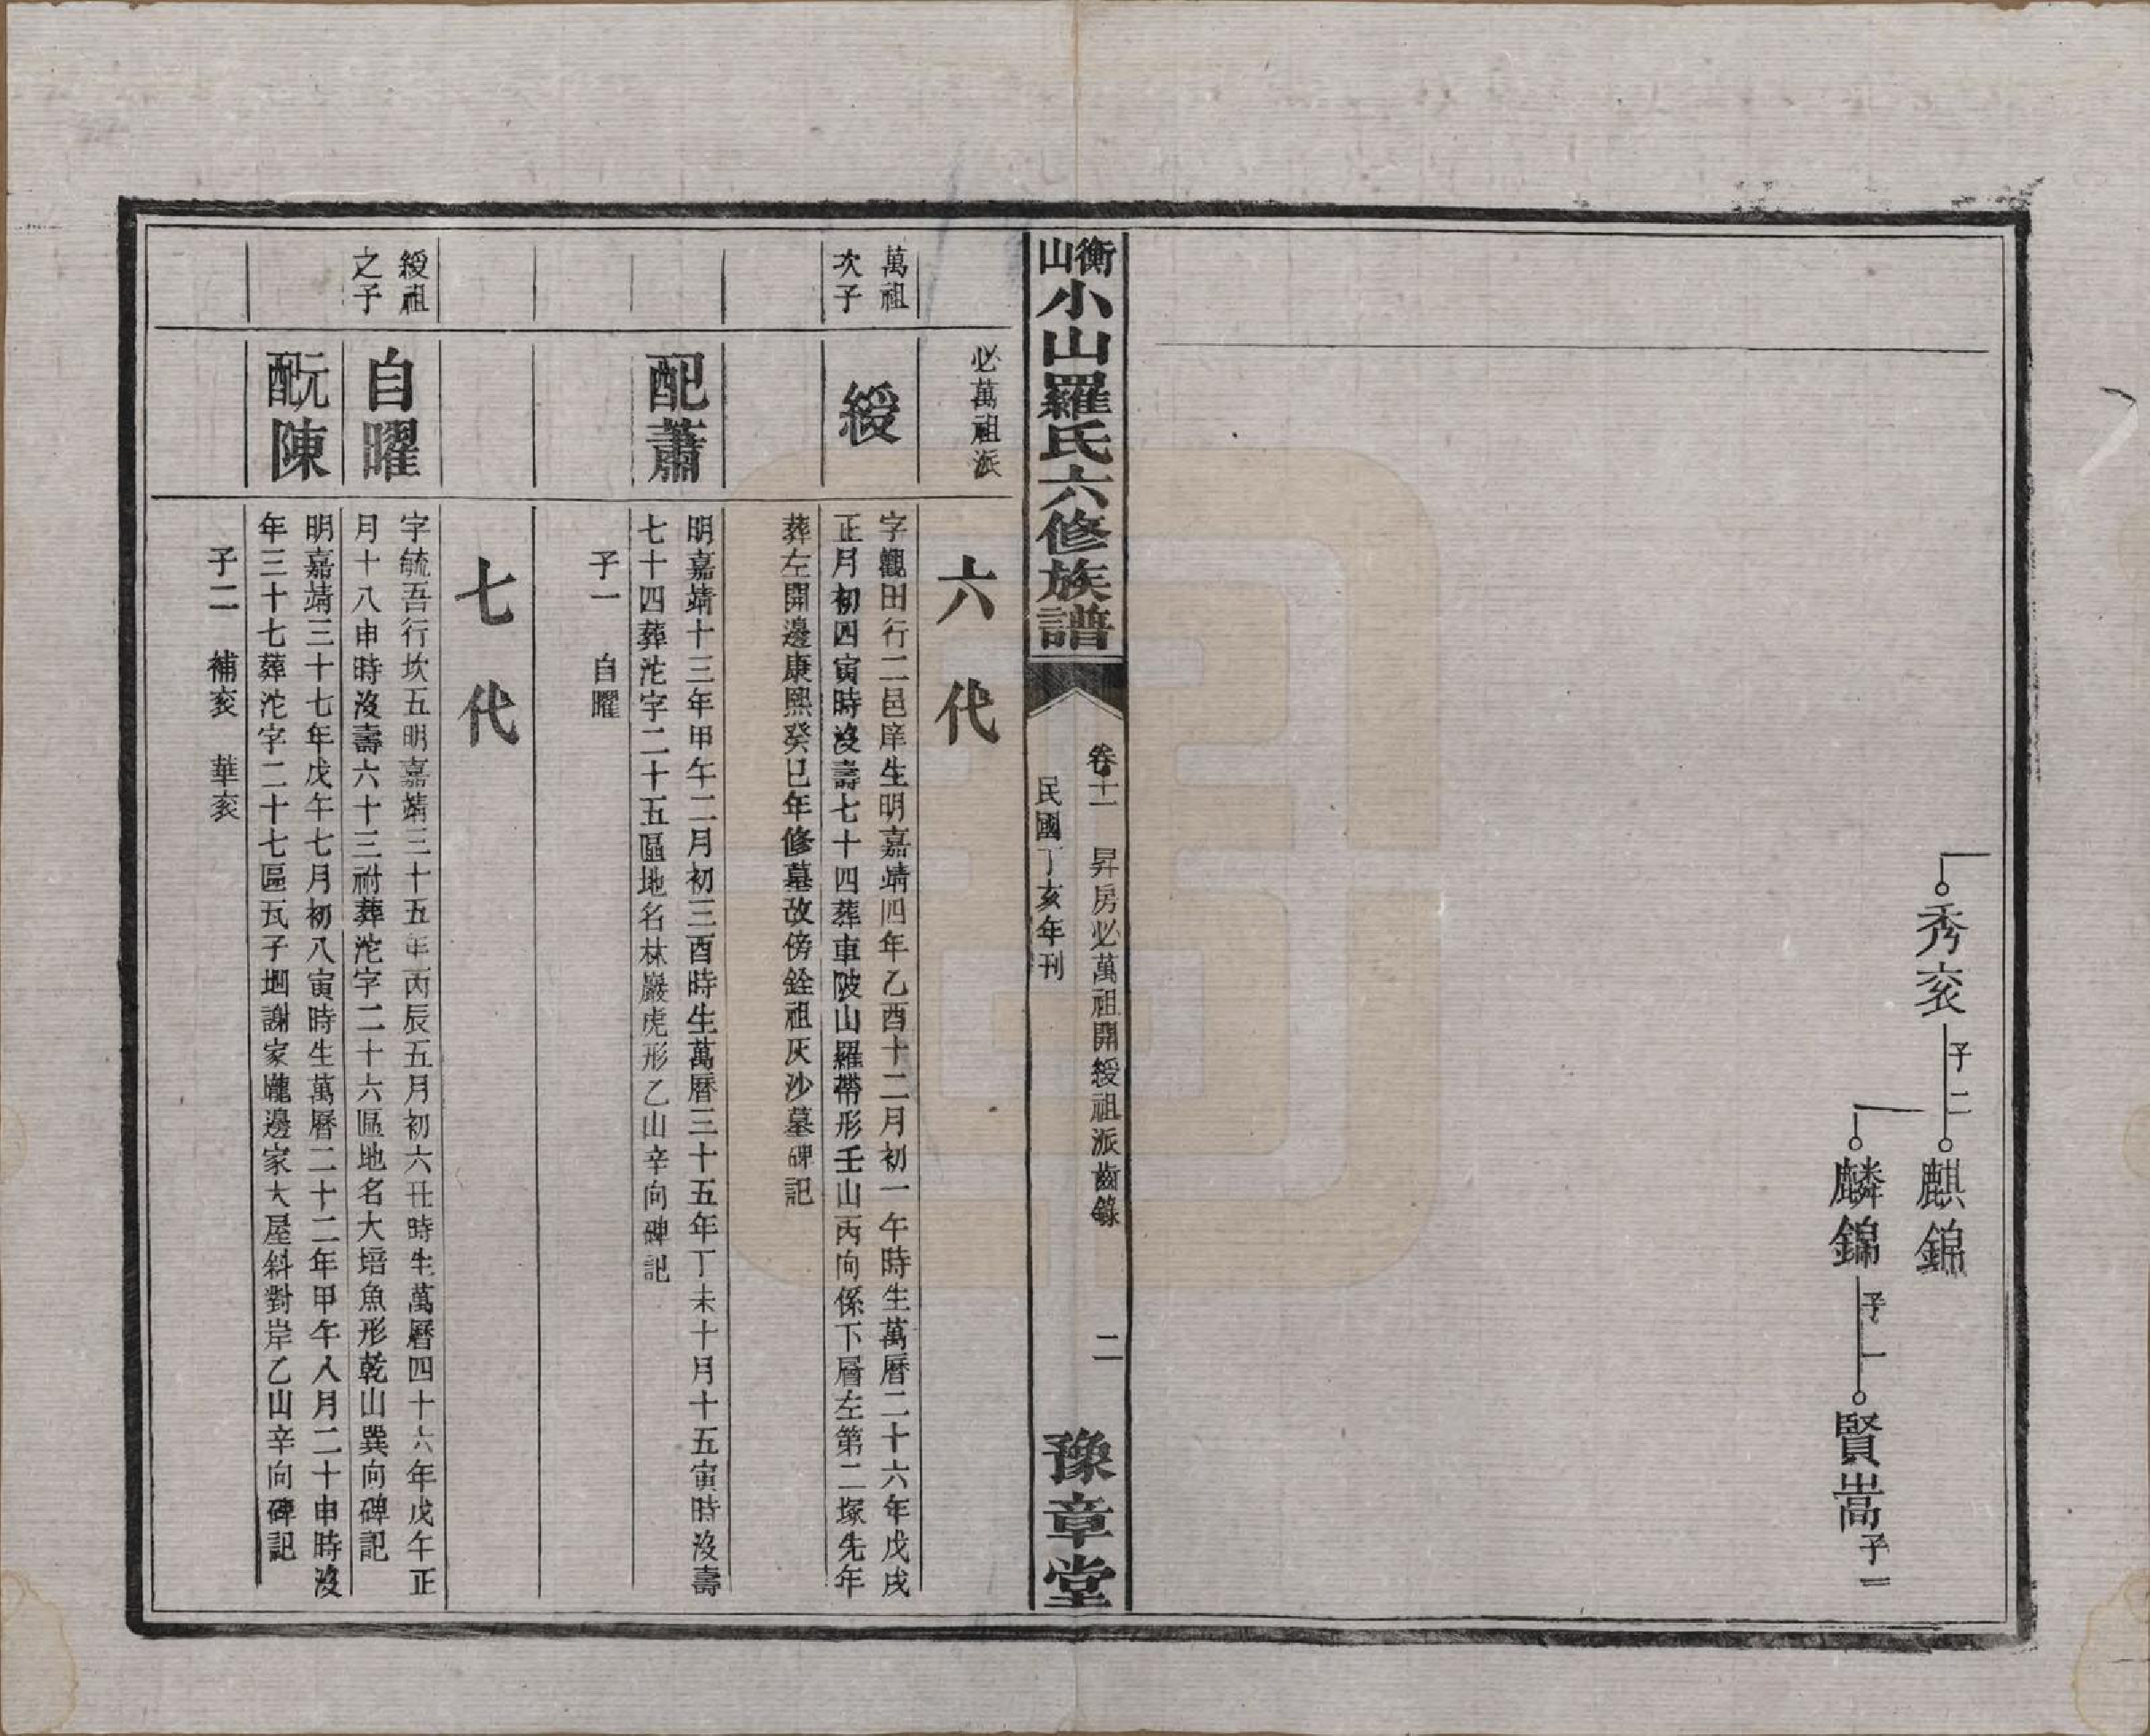 秀亥
子二
麒錦
麟錦
子一
賢嵩
子一
衡山小山羅氏六修族譜
卷十一　昇房必萬祖開綬祖派齒錄　二
民國丁亥年刊
豫章堂
必萬祖派
六代
萬祖
次子
綬
字觀田行二邑庠生明嘉靖四年乙酉十二月初一午時生萬曆二十六年戊戌
正月初四寅時沒壽七十四葬車陂山羅帶形壬山丙向係下層左第二塚先年
葬左開邊康熙癸巳年修墓改傍銓祖灰沙墓碑記
配蕭
明嘉靖十三年甲午二月初三酉時生萬曆三十五年丁未十月十五寅時沒壽
七十四葬沱字二十五區地名林巖虎形乙山辛向碑記
子一　自曜
七代
綬祖
之子
自曜
字毓吾行坎五明嘉靖三十五年丙辰五月初六丑時生萬曆四十六年戊午正
月十八申時沒壽六十三祔葬沱字二十六區地名大培魚形乾山巽向碑記
配元陳
明嘉靖三十七年戊午七月初八寅時生萬曆二十二年甲午八月二十申時沒
年三十七葬沱字二十七區瓦子坵謝家隴邊家大屋斜對岸乙山辛向碑記
子二　補亥　華亥